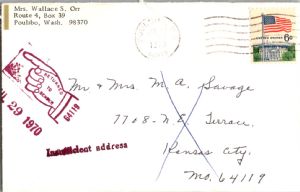 Mrs. Wallace S. Orr
Route 4, Box 39
Poulsbo, Wash. 98370
6c
RETURNED
TO
SENDER
64119
29 1970
Mr & Mrs. M. A. Savage
7708 - N. E. Terrace,
Kansas City,
Mo. 64119
Insufficient address